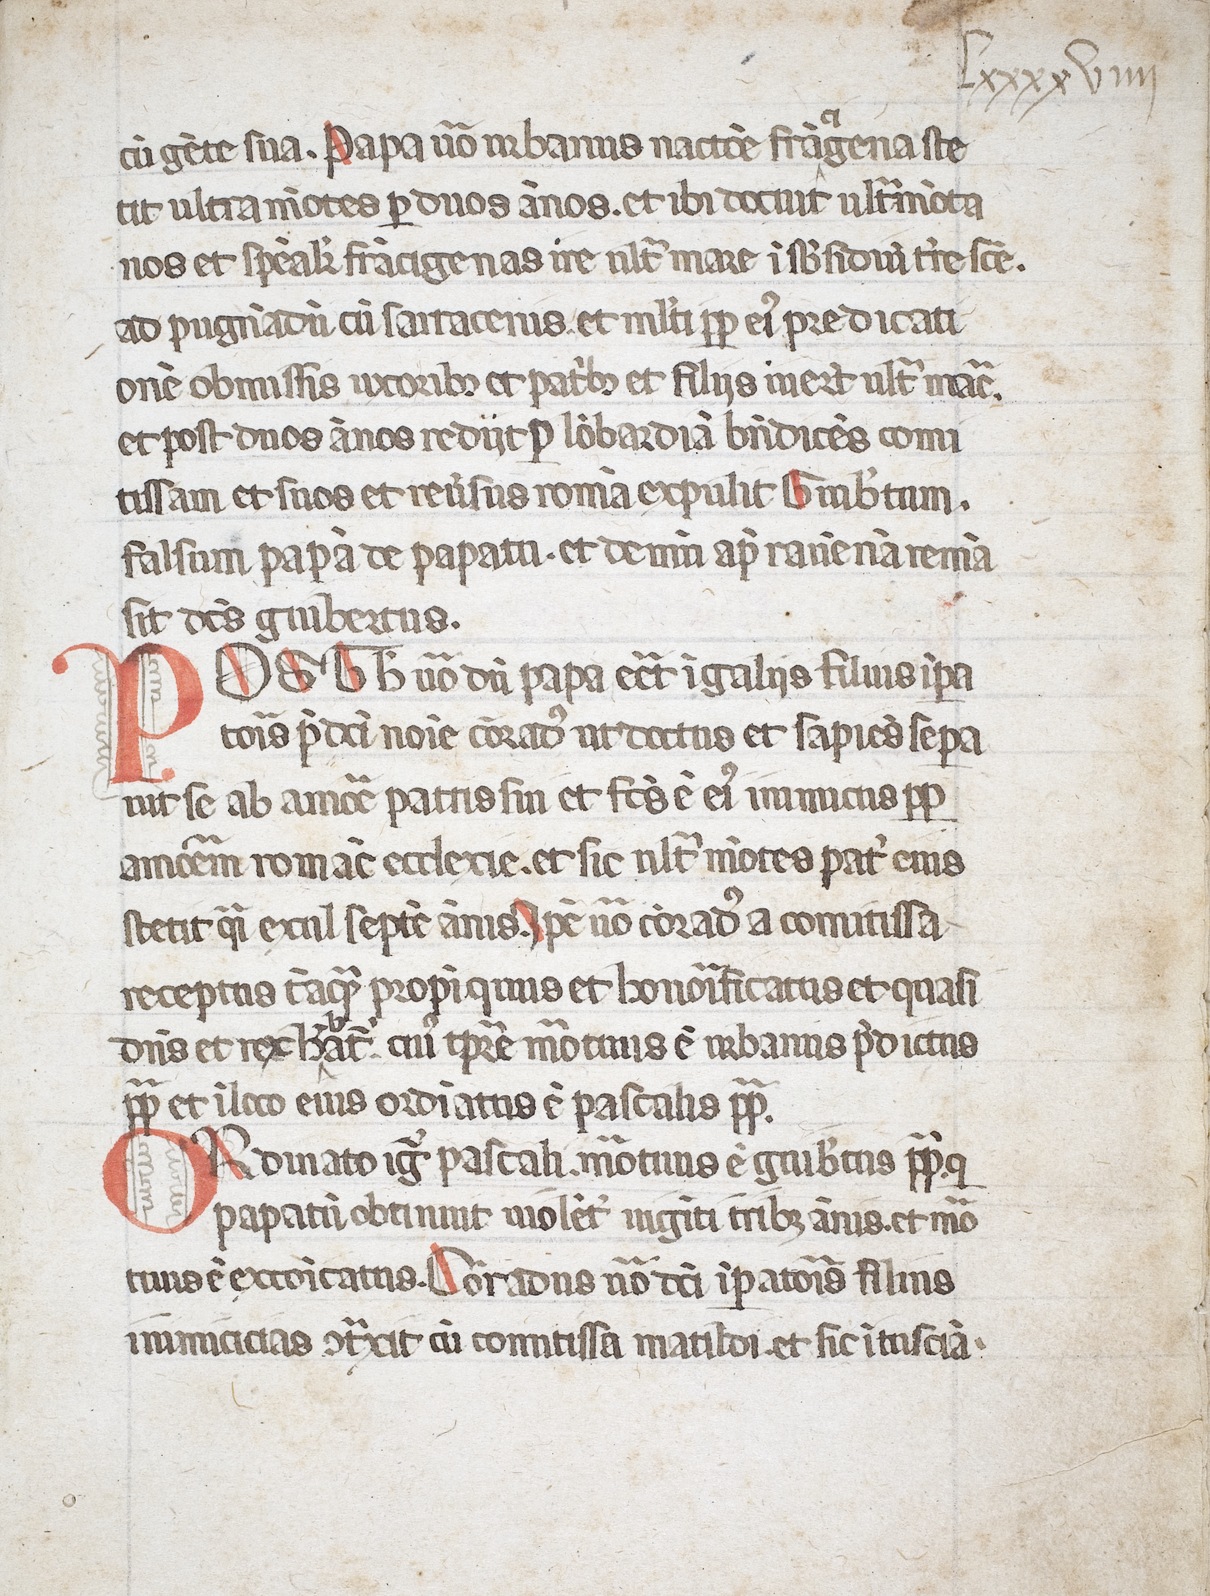 Lxxxxviiii
cū gēte sua. Papa uō urbanus nactōe frācigena ste
tit ultra mōtes ꝑ duos ānos. et ibi docuit ult̄mōta
nos et spēalr̄ frācigenas ire ult̄ mare ī sb̄sidiū tr̄e scē.
ad pugnādū cū sarracenis. et ml̄ti ꝓp eiꝰ predicati
onē obmissis uxoribꝫ et pat̄bꝫ et filijs iuerūt ult̄ mar̄.
et post duos ānos redijt ꝑ lōbardiā bn̄dicēs comi
tissam et suos et reūsus romā expulit Guib̄tum.
falsum papā de papatu. et demū ap̄ rauēnā remā
sit dc̄s guibertus.
POST H̄ uō dū papa ēēt ī galijs filius īpa
toris p̄dc̄i noīe cōradꝰ ut doctus et sapiēs sepa
uit se ab amōē patris sui et fc̄s ē eiꝰ inimicus ꝓp
amōem romāe ecclexie. et sic ult̄ mōtes pat̄ eius
stetit q̄i exul septē ānis. Ip̄e uō cōradꝰ a comitissa
receptus tāqꝫ propīquus et honorificatus et quasi
dn̄s et rex hab̄at̄. cuiꝰ tp̄re mōtuus ē urbanus p̄dictus
p̄p̄ et īloco eius ordīatus ē pascalis p̄p̄.
ORdinato iḡ pascali. mōtuus ē guib̄tus p̄p̄. q
papatū obtinuit uiolēt̄ uigīti tribꝫ ānis. et mō
tuus ē excōīcatus. Cōradus uō dc̄i īpatoris filius
inimicicias ꝯt̄xit cū comitissa matildi. et sic ī tusciā.